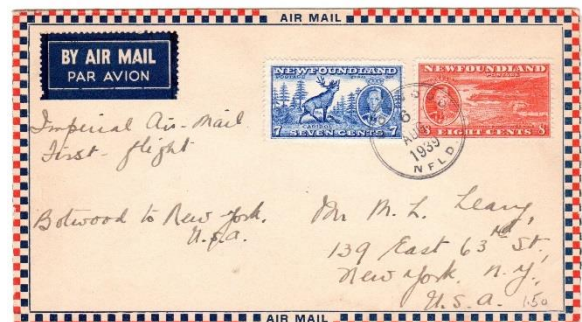 AIR MAIL
BY AIR MAIL
PAR AVION
NEWFOUNDLAND
POSTAGE
CARIBOU
7 SEVEN CENTS 7
NEWFOUNDLAND
EIGHT CENTS 8
6
AUG
1939
NFLD.
Imperial Air-Mail
First-flight
Botwood to New York.
U.S.A.
Mr M. L. Leary,
139 East 63rd St,
New York. N.Y,
U.S.A.
1.50
AIR MAIL